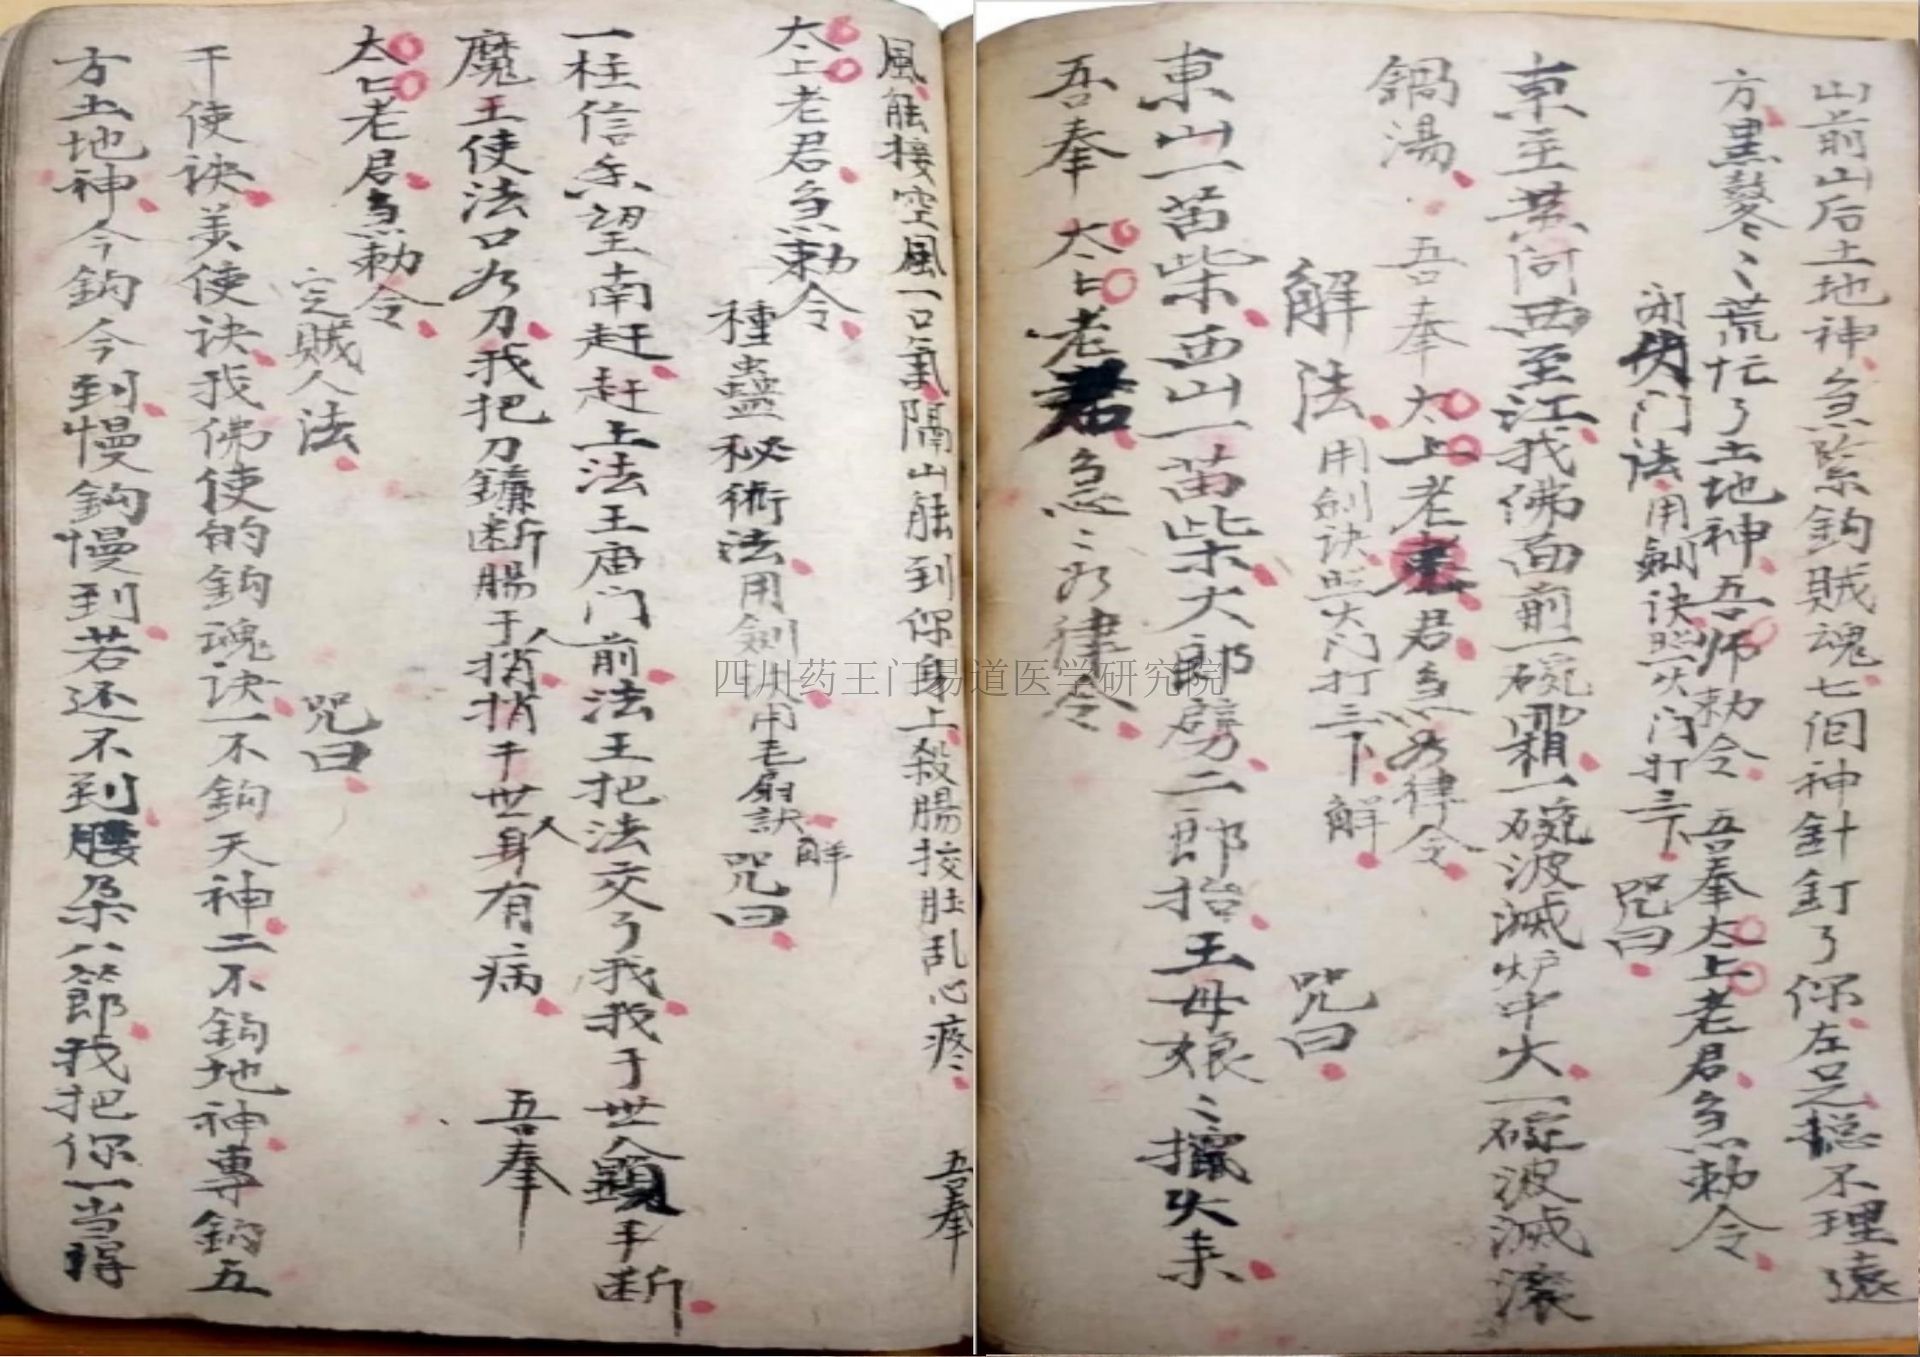 山前山后土地神急緊鈎賊魂七個神針釘了你左足穩不理遠
方黑鼕〻荒忙了土地神吾师勅令 吾奉太上老君急勅令
门法用劍诀照火门打三下 咒曰
東至黄河西至江我佛面前一碗一碗波滅炉中火一碗波滅滚
鍋湯 吾奉太上老君急为律令
解法用劍诀照火门打三下解 咒曰
東山一苗柴西山一苗柴大郎劈二郎抬王母娘〻攛火来
吾奉 太上老君急〻为律令
風能接空風一口氣隔山能到你身上殺腸挍肚乱心疼 吾奉
太上老君急勅令
種蠱秘術法用劍诀用毛扇訣解 咒曰
一柱信香望南赶赶上法王庙门前法王把法交了我我于世人手断
魔王使法口为刀我把刀鐮断腸于人捎捎千世身人有病 吾奉
太上老君急勅令
定賊人法 咒曰
干使诀美使诀我佛使的鈎魂诀一不鈎天神二不鈎地神專鈎五
方土地神今鈎今到慢鈎慢到若还不到腰朶八節我把你一当得
四川药王门易道医学研究院